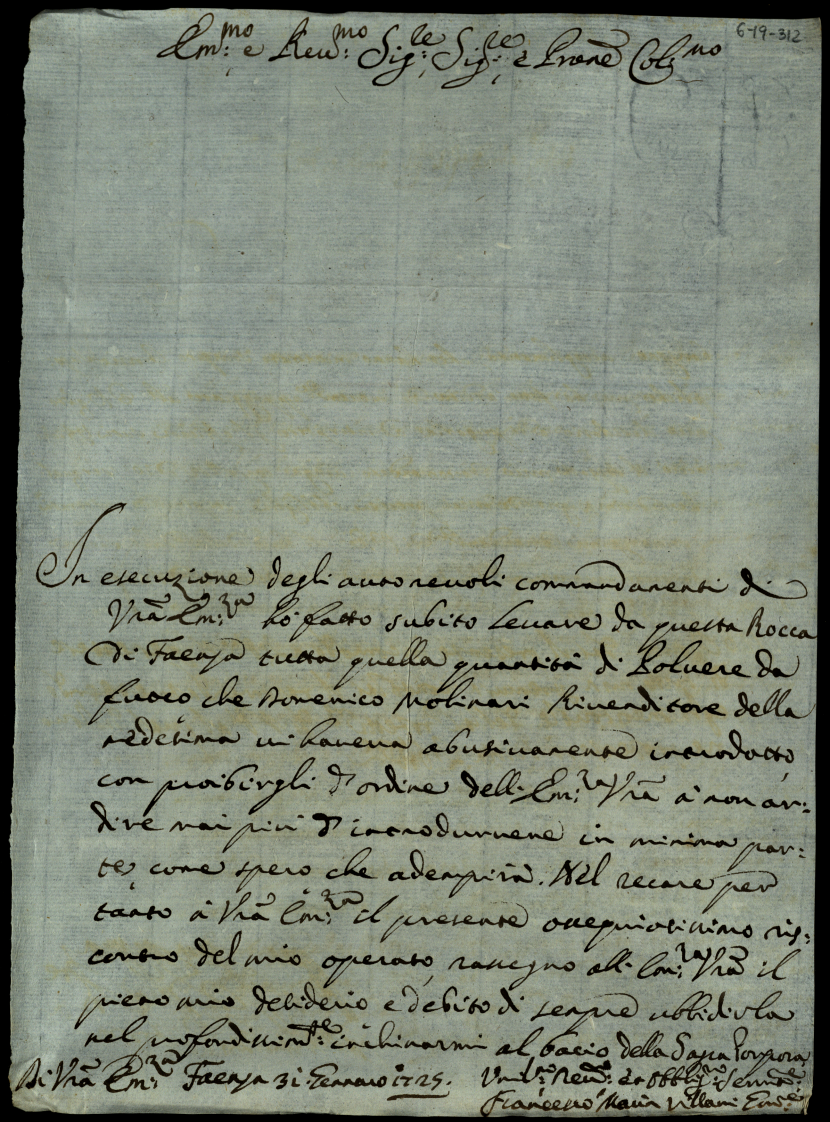 6-19-312
Em:mo e Reu:mo Sig:re Sig:re e Prone Col:mo
In esecuzione degli autoreuoli commandamenti di
Vrã Em:za hò fatto subito leuare da questa Rocca
di Faenza tutta quella quantità di Poluere da
fuoco che Domenico Molinari Riuenditore della
medesima ui haueua abusiuamente introdotto,
con proibirgli d'ordine dell'Em:za Vrã à non ar:
dire mai più d'introduruene in minima par:
te, come spero che adempirà. Nel recare per
tanto à Vrã Em:za il presente ossequiosissimo ris:
contro del mio operato, rassegno all'Em:za Vrã il
pieno mio desiderio e debito di sempre ubbidirla
nel profondissim:te inchinarmi al bacio della Sacra Porpora
Di Vrã Em:za Faenza 31 Gennaro 1725.
Um:mo Reu:mo et Obblig:mo Seruitore
Francesco Maria Villani